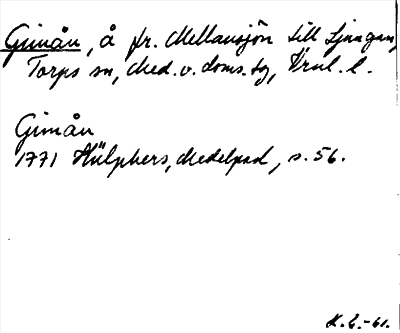 Gimån, å fr. Mellansjön till Ljungan,
Torps sn, Med. v. doms.sg, Vrnl. l.
Gimån
1771 Hülphers, Medelpad, s. 56.
K. E. -61.